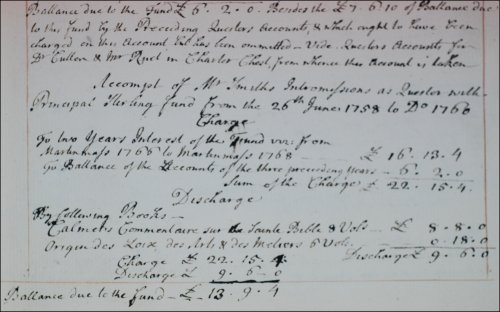 Ballance due to the Fund £ 6. 2. 0. Besides the £ 7. 6. 10 of Ballance due
to this fund by the Preceding Questors Accounts, & which ought to have been
charged on this Account but has been ommitted – Vide Questors Accounts for
Dr Cullen & Mr Ruet in Charter Chest, from whence this Account is taken
Accompt of Mr Smiths Intromissions as Questor with
Principal Sterling Fund from the 26th June 1758 to Do 1760
Charge
To two Years Interest of the Fund viz: from
Martinmass to Martinmass £ 16. 13. 4
To Ballance of the Accounts of the three preceeding Years – 6. 2. 0
Sum of the Charge £ 22. 15. 4.
Discharge
By following Books –
Calmets Commentaire sur la Sainte Bible 8 Vols – £ 8. 8. 0
Origin des Loix des Arts & des Metiers 6 Vols. 0. 18. 0
Charge £ 22. 15. 4 Discharge £ 9. 6. 0
Discharge £ 9. 6. 0
Ballance due to the Fund – £ 13. 9. 4